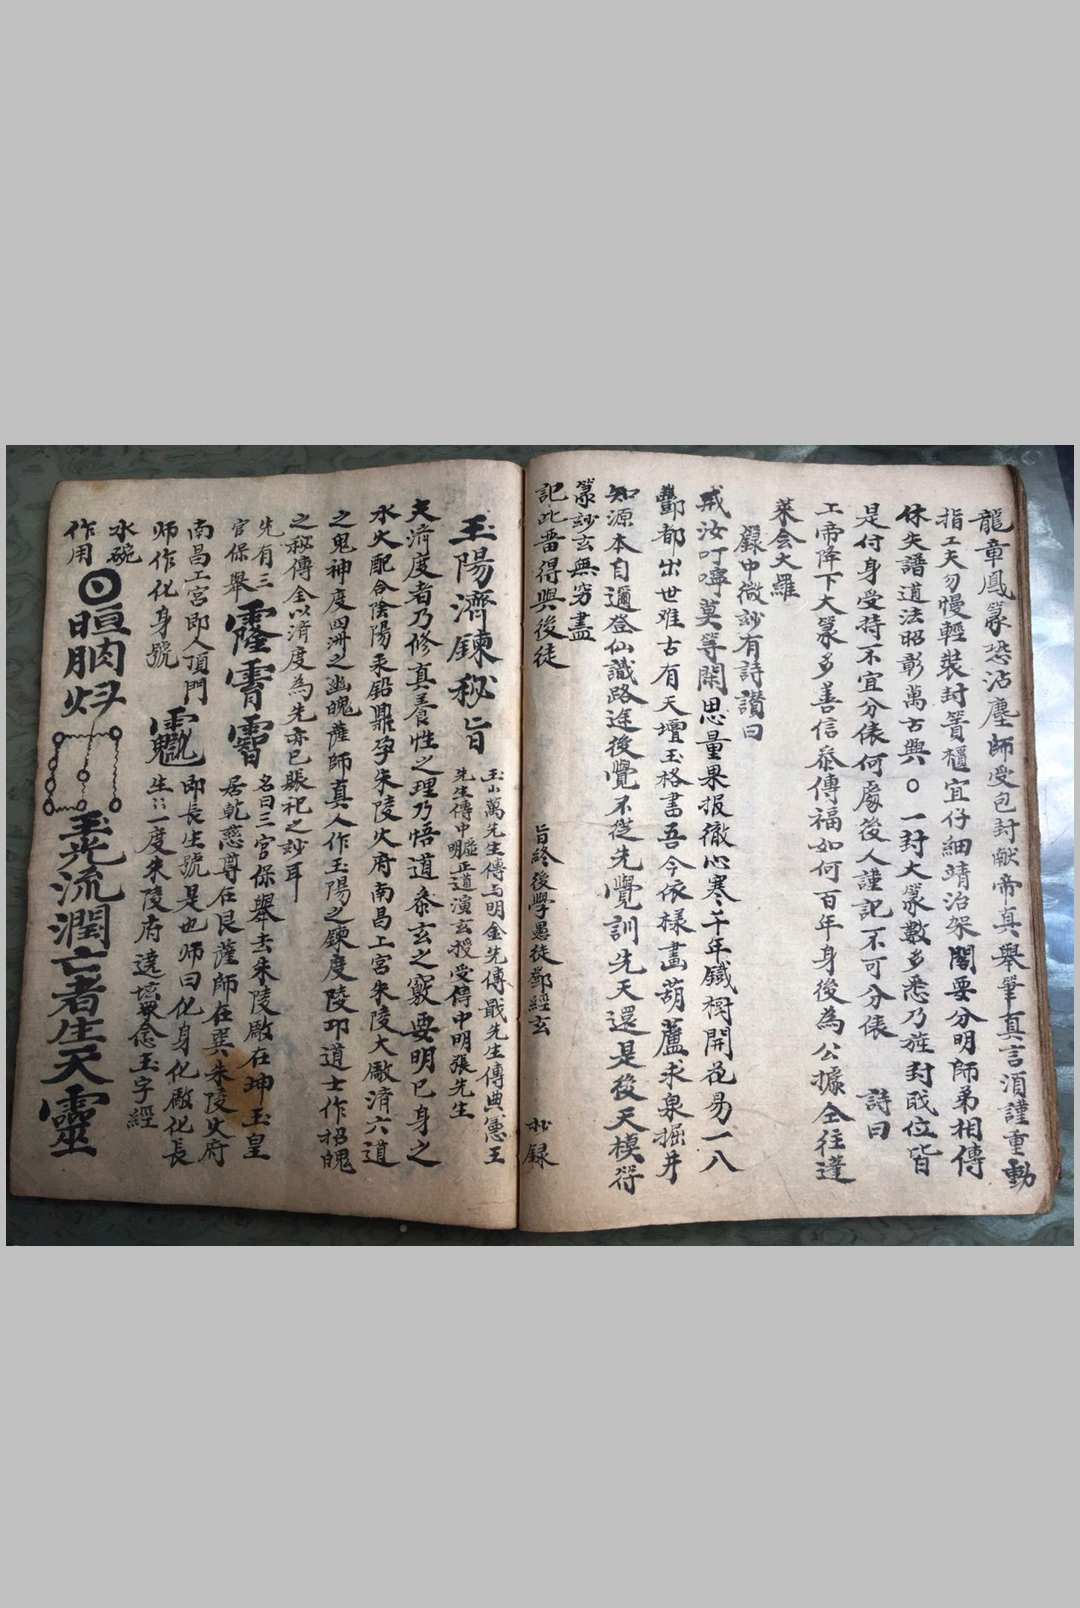 龍章鳳篆恐沾塵師受包封献帝真舉筆真言須謹重動
指工夫勿慢輕裝封籄櫃宜仔細靖治架閣要分明師弟相傳
休失譜道法昭彰萬古興○一封大篆數多悉乃旌封戝位皆
是付身受持不宜分俵何處後人謹記不可分俵 詩曰
工帝降下大篆多善信叅傳福如何百年身後為公據全往逹
萊会大羅
籙中微玅有詩讃曰
戒汝叮嚀莫等閑思量果报徹心寒千年鐵樹開花易一八
酆都出世难古有天壇玉格書吾今依樣畫葫蘆求泉掘井
知源本自邇登仙識路途後覺不從先覺訓先天還是後天模得
篆玅玄無穷盡
記此畨得興後徒
旨終後學愚徒鄭經玄 抄録
玉陽濟鍊秘旨
玉山萬先生傳与明金先傳戢先生傳典憲王
先生傳中明正道演玄授受傳中明張先生
夫濟度者乃修真養性之理乃悟道叅玄之竅要明已身之
水火配合陰陽汞鉛鼎孕朱陵火府南昌工宮朱陵大敵済六道
之鬼神度四洲之幽魄薩師真人作玉陽之鍊度陵卭道士作招魄
之秘傳全以済度為先亦已賬祀之玅耳
先有三
官保舉
名曰三官保舉去朱陵敵在坤玉皇
居乾慈尊在艮薩師在巽朱陵火府
南昌工宮即人頂門
师作化身號
即長生號是也师曰化身化敵化長
生一度朱陵府遶壇眾念玉字經
水碗
作用
玉光流潤亡者生天靈